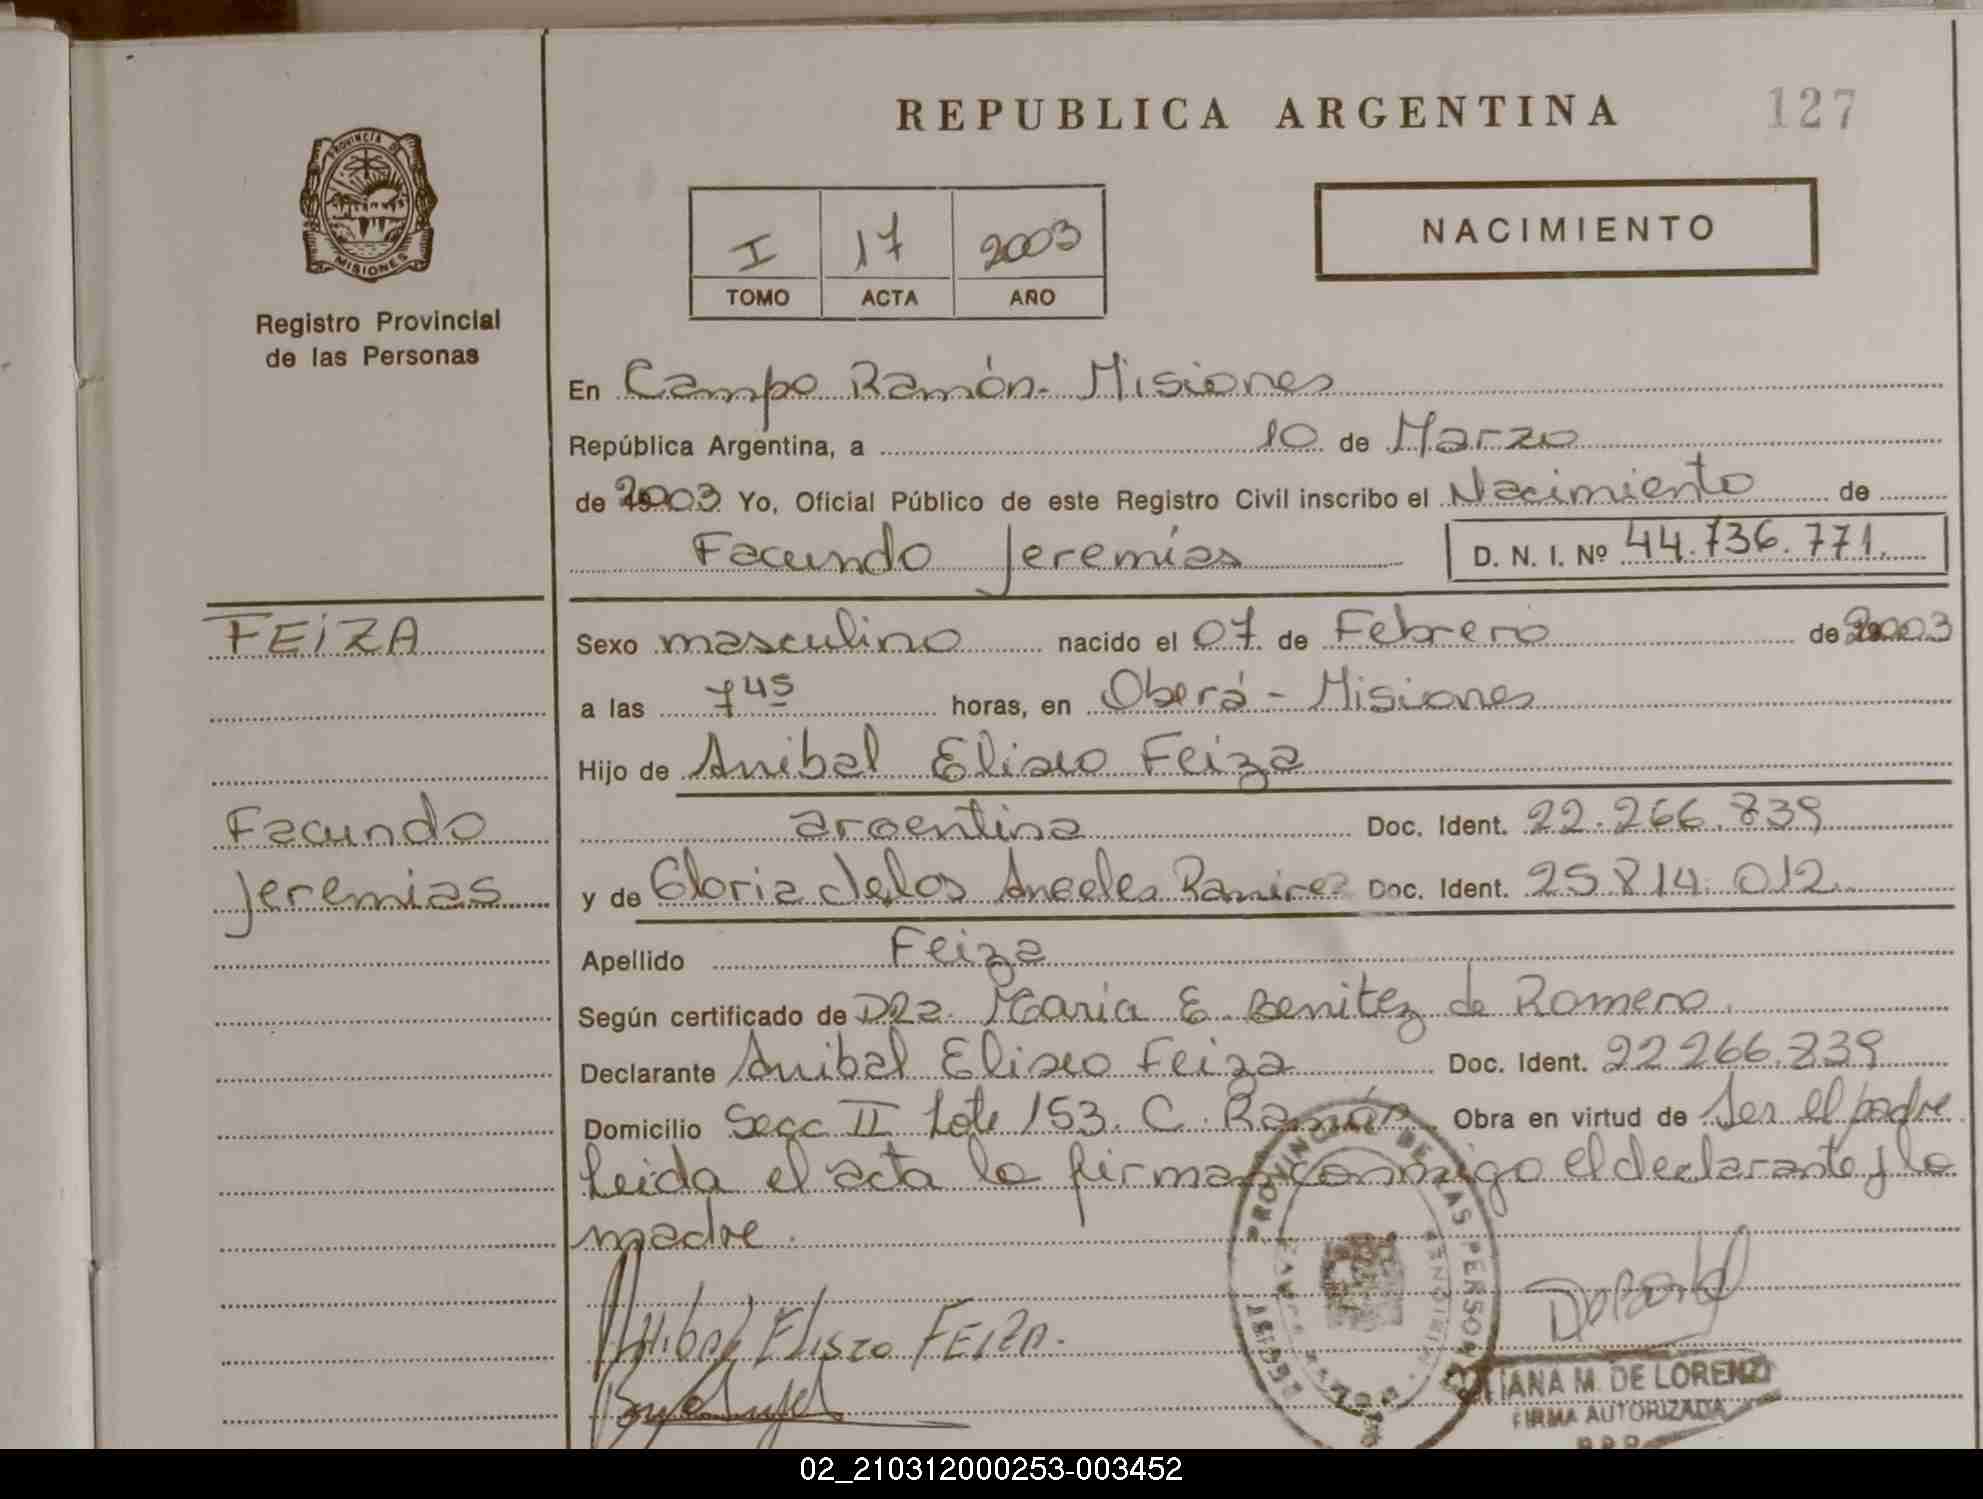 REPUBLICA ARGENTINA
127
PROVINCIA DE
MISIONES
Registro Provincial
de las Personas
I 17 2003
TOMO ACTA AÑO
NACIMIENTO
En Campo Ramón - Misiones
República Argentina, a 10 de Marzo
de 2003 Yo, Oficial Público de este Registro Civil inscribo el Nacimiento de
Facundo Jeremías D. N. I. Nº 44.736.771.
FEIZA
Facundo
Jeremias
Sexo masculino nacido el 07 de Febrero de 2003
a las 7 45 horas, en Oberá - Misiones
Hijo de Anibal Eliseo Feiza
argentina Doc. Ident. 22.266.839
y de Gloria de los Angeles Ramirez Doc. Ident. 25.814.012
Apellido Feiza
Según certificado de DRa. Maria E. Benitez de Romero.
Declarante Anibal Eliseo Feiza Doc. Ident. 22.266.839
Domicilio Secc II Lote 153. C. Ramón Obra en virtud de Ser el padre
Leida el acta la firman conmigo el declarante y la
madre.
Anibal Eliseo FEIZA.
PROVINCIAL DE LAS PERSONAS
MISIONES
IANA M. DE LORENZI
FIRMA AUTORIZADA
R.P.P.
02_210312000253-003452